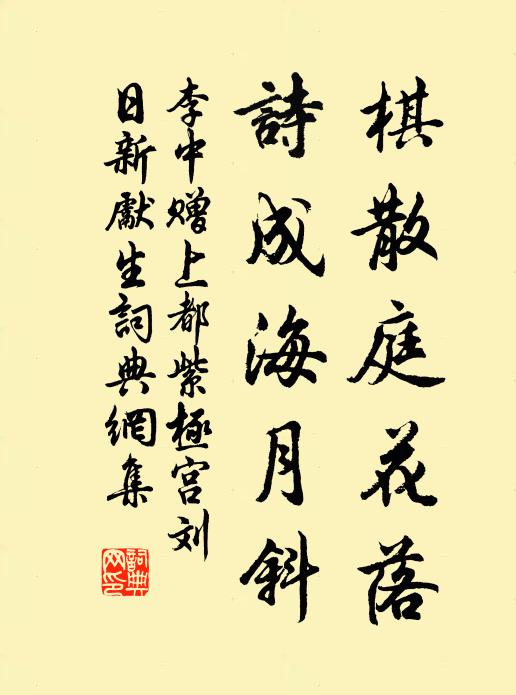 棋散庭花落
詩成海月斜
李中赠上都紫極宫刘
日新獻生詞典網集
詞典
网印